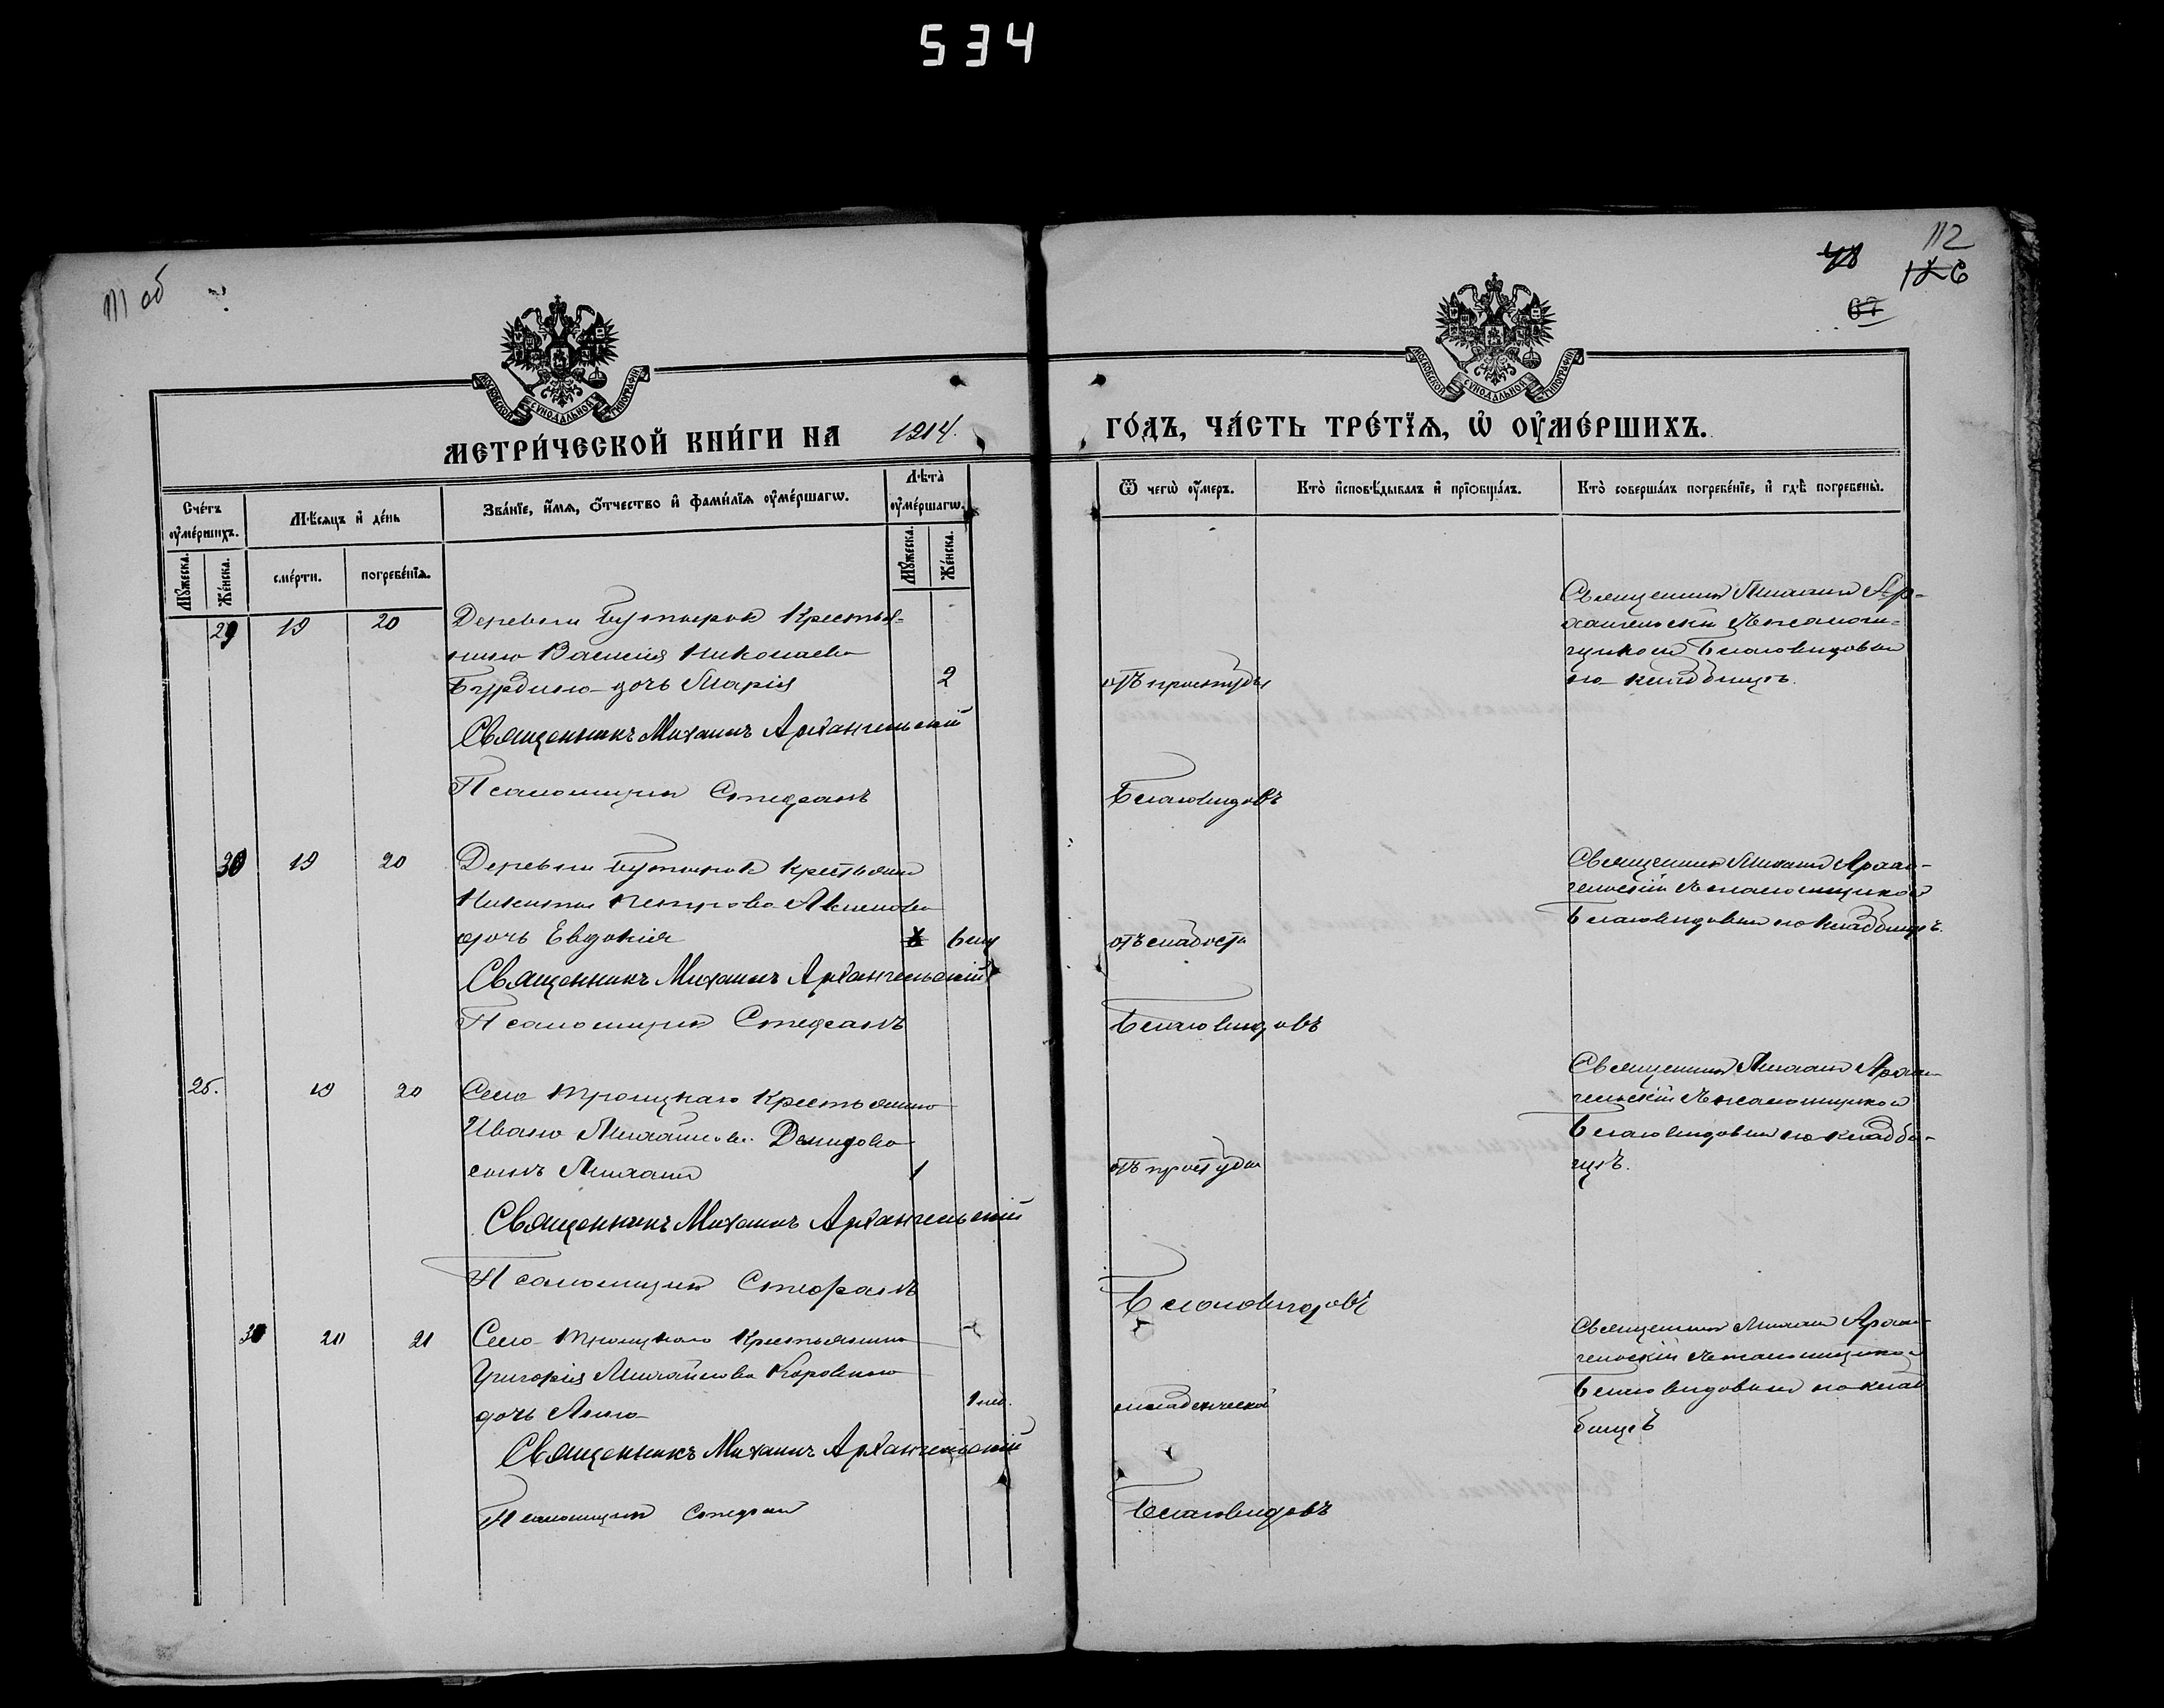 534
111 об
112
МЕТРИ́ЧЕСКОЙ КНИ́ГИ НА 1914.
ГО́ДЪ, ЧА́СТЬ ТРЕ́ТЇѦ, Ѡ҆ ОУ҆МЕ́РШИХЪ.
Сче́тъ оу҆ме́ршихъ.
Мѣ́сѧцъ и҆ де́нь
Зва́нїе, и҆́мѧ, ѻ҆́тчество и҆ фами́лїѧ оу҆ме́ршагѡ.
Лѣ́та оу҆ме́ршагѡ.
Ѿ чегѡ̀ оу҆́меръ.
Кто̀ и҆сповѣ́дывалъ и҆ прїѻбща́лъ.
Кто̀ соверша́лъ погребе́нїе, и҆ гдѣ̀ погребены̀.
Мꙋ́жеска.
Же́нска.
сме́рти.
погребе́нїѧ.
Мꙋ́жеска.
Же́нска.
29 19 20 Деревни Бутырокъ Крестья-
нина Василія Николаева
Бурдина дочь Марія 2 отъ простуды
Священникъ Михаилъ Ар-
хангельскій съ псаломщ-
щикомъ Благовидовым
на кладбищѣ.
Священникъ Михаилъ Архангельскій
Псаломщикъ Стефанъ Благовидовъ
30 19 20 Деревни Бутырокъ крестьянина
Никиты Петрова
дочь Евдокія 6 отъ слабости
Священникъ Михаилъ Архан-
гельскій съ псаломщикомъ
Благовидовым на кладбищѣ.
Священникъ Михаилъ Архангельскій
Псаломщикъ Стефанъ Благовидовъ
25. 19 20 Села Троицкаго Крестьянина
Ивана Михайлова Демидова
сынъ Михаилъ 1 отъ простуды
Священникъ Михаилъ Архан-
гельскій съ псаломщикомъ
Благовидовым на кладби-
щѣ.
Священникъ Михаилъ Архангельскій
Псаломщикъ Стефанъ Благовидовъ
20 21 Села Троицкаго Крестьянина
Григорія Михайлова Коровина
дочь Анна младенческой
Священникъ Михаилъ Архан-
гельскій съ псаломщикомъ
Благовидовым на клад
бищѣ
Священникъ Михаилъ Архангельскій
Псаломщикъ Стефанъ Благовидовъ